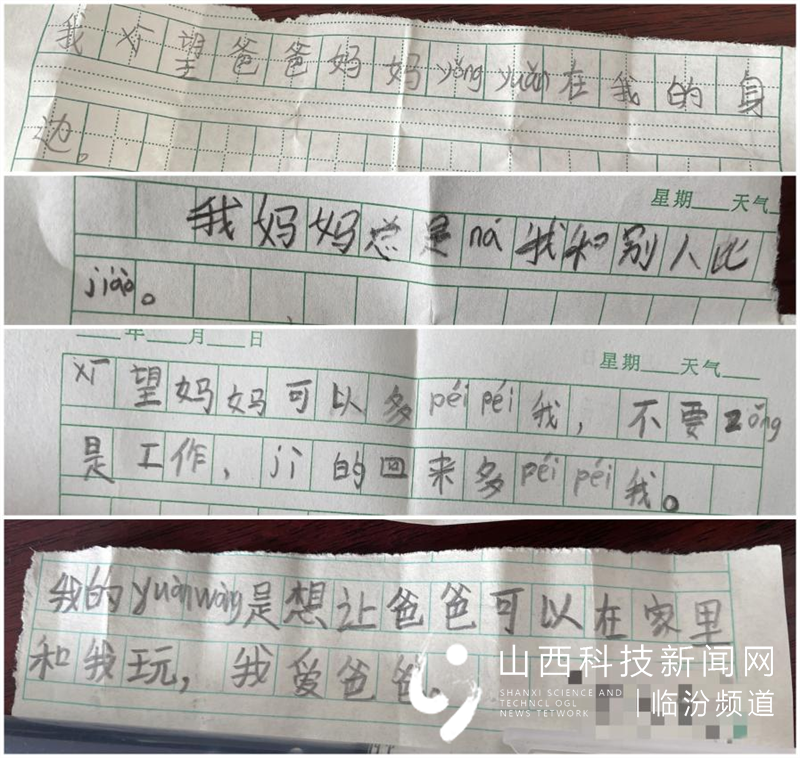 我xī望爸爸妈妈yǒng yuǎn在我的身
边。
星期 天气
我妈妈总是ná我和别人比
jiào。
年 月 日
星期 天气
xī望妈妈可以多péi péi我，不要zǒng
是工作，jì的回来多péi péi我。
我的yuàn wàng是想让爸爸可以在家里
和我玩，我爱爸爸。
山西科技新闻网
SHANXI SCIENCE AND
TECHNCL OGL
NEWS TETWORK
临汾频道